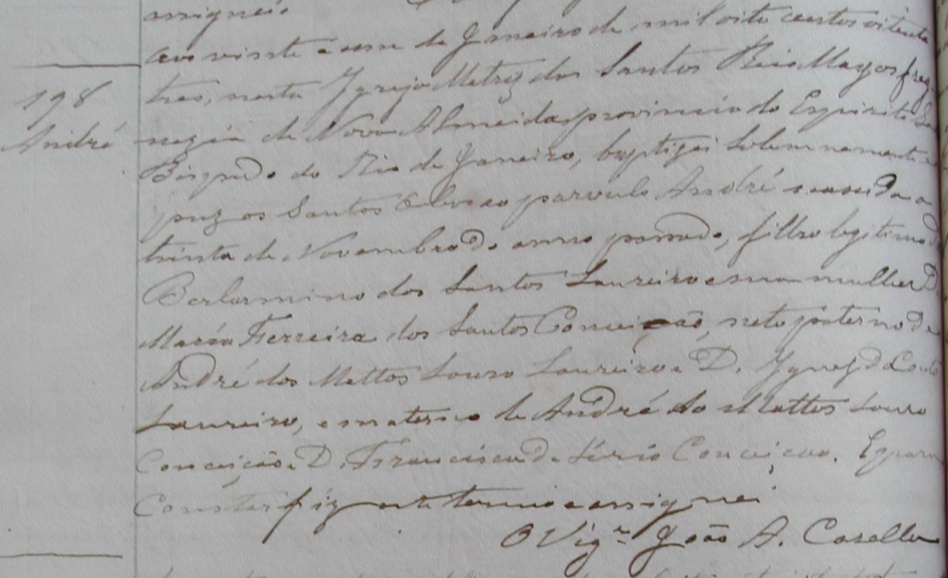 assignei.
aos vinte e um de Janeiro de mil oito centos oitenta
198
tres, nesta Igreja Matriz dos Santos Reis Magos freg
André
nezia de Nova Almeida, provincia do Espirito
Bispado do Rio de Janeiro, baptizei solemnemente
puz os Santos Oleos ao parvulo André nascido a
trinta de Novembro do anno passado, filho legitimo
Berlarmino dos Santos Loureiro e sua mulher D.
Maria Ferreira dos Santos Conceição, neto paterno de
André dos Mattos Louro Loureiro e D. Ignez do
Laureiro, e materno de André do Mattos Louro
Conceição e D. Francisca de Conceição. E para
Constar fiz este termo e assignei
O Vigrº João A. Casella